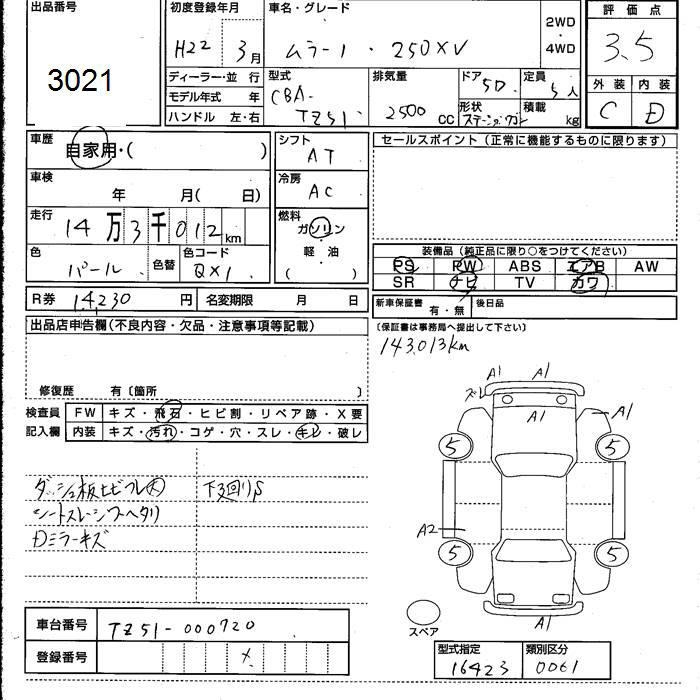 出品番号
3021
初度登録年月
H22 3月
車名・グレード
ムラーノ・250XV
2WD
・
4WD
評価点
3.5
外装 内装
C D
ディーラー・並行
モデル年式 年
ハンドル 左・右
型式
CBA-
TZ51
排気量
2500 CC
ドア 5D
形状
ステーションワゴン
定員 5人
積載 kg
車歴
自家用・( )
車検
年 月( 日)
走行
14万3千012km
色
パール
色替
色コード
QX1
シフト
AT
冷房
AC
燃料
ガソリン
・
軽油
( )
セールスポイント(正常に機能するものに限ります)
装備品(純正品に限り○をつけてください)
PS PW ABS エアB AW
SR ナビ TV カワ
R券 14230円 名変期限 月 日
新車保証書 有・無 後日品
(保証書は事務局へ提出して下さい)
出品店申告欄(不良内容・欠品・注意事項等記載)
143,013km
修復歴 有〔箇所 〕
検査員 FW キズ・飛石・ヒビ割・リペア跡・X要
記入欄 内装 キズ・汚れ・コゲ・穴・スレ・キレ・破レ
ダッシュ板ヒビワレ大
下廻りS
シートスレ シワ ヘタリ
Dミラーキズ
A1 A1
ズレ
A1
A1
5 5
A2
5 5
A1
スペア
車台番号 TZ51-000720
登録番号
型式指定 類別区分
16423 0061